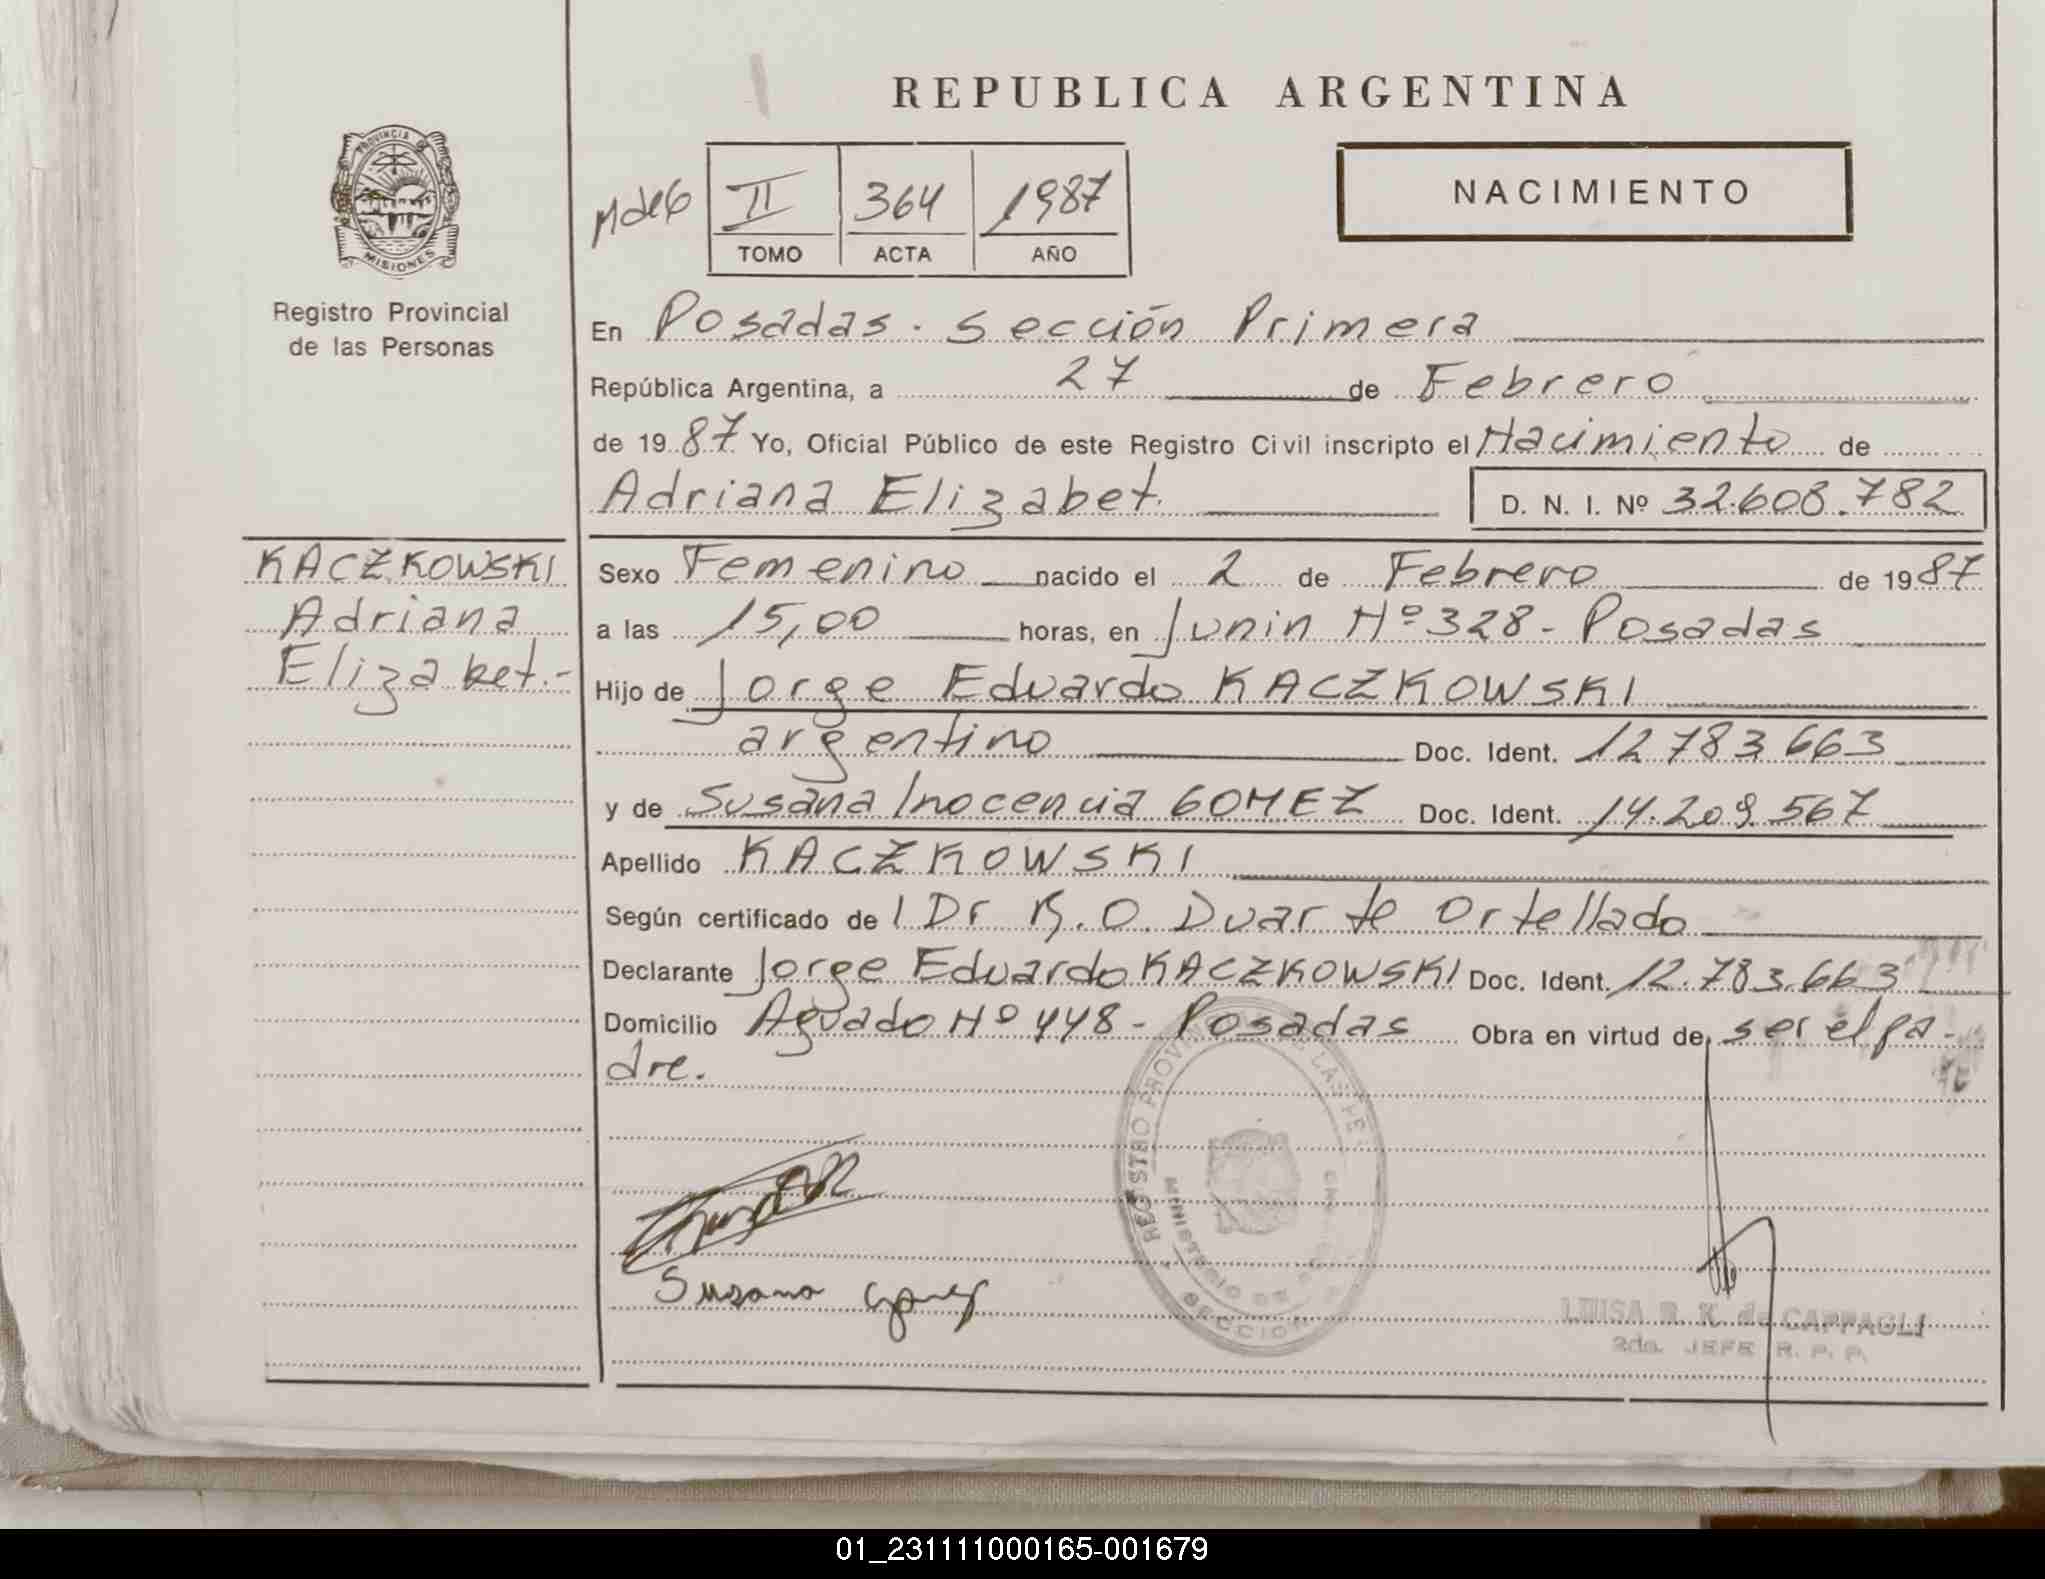 REPUBLICA ARGENTINA
PROVINCIA DE MISIONES
Registro Provincial
de las Personas
II 364 1987
TOMO ACTA AÑO
NACIMIENTO
En Posadas. Sección Primera
República Argentina, a 27 de Febrero
de 1987 Yo, Oficial Público de este Registro Civil inscripto el Nacimiento de
Adriana Elizabet. D. N. I. Nº 32.608.782
KACZKOWSKI
Adriana
Elizabet.-
Sexo Femenino nacido el 2 de Febrero de 1987
a las 15,00 horas, en Junin Nº 328 - Posadas
Hijo de Jorge Eduardo KACZKOWSKI
argentino Doc. Ident. 12.783.663
y de Susana Inocencia GOMEZ Doc. Ident. 14.209.567
Apellido KACZKOWSKI
Según certificado de l Dr R. O. Duarte Ortellado
Declarante Jorge Eduardo KACZKOWSKI Doc. Ident. 12.783.663
Domicilio Aguado Nº 448 - Posadas Obra en virtud de ser el pa-
dre.
REGISTRO PROVINCIAL DE LAS PE
MINISTERIO DE GOBIERNO
SECCION
Susana Gomez
LUISA R. K. de CAPPAGLI
2da. JEFE R. P. P.
01_231111000165-001679